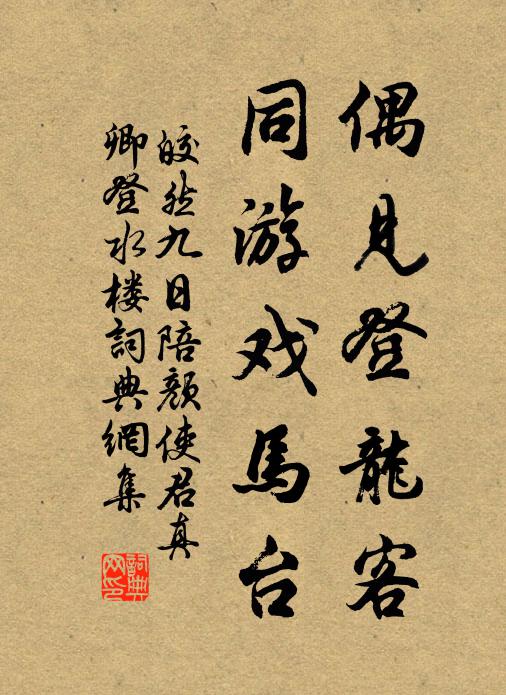 偶見登龍客
同游戏馬台
皎然九日陪顔使君真
卿登水楼詞典網集
詞典
网印